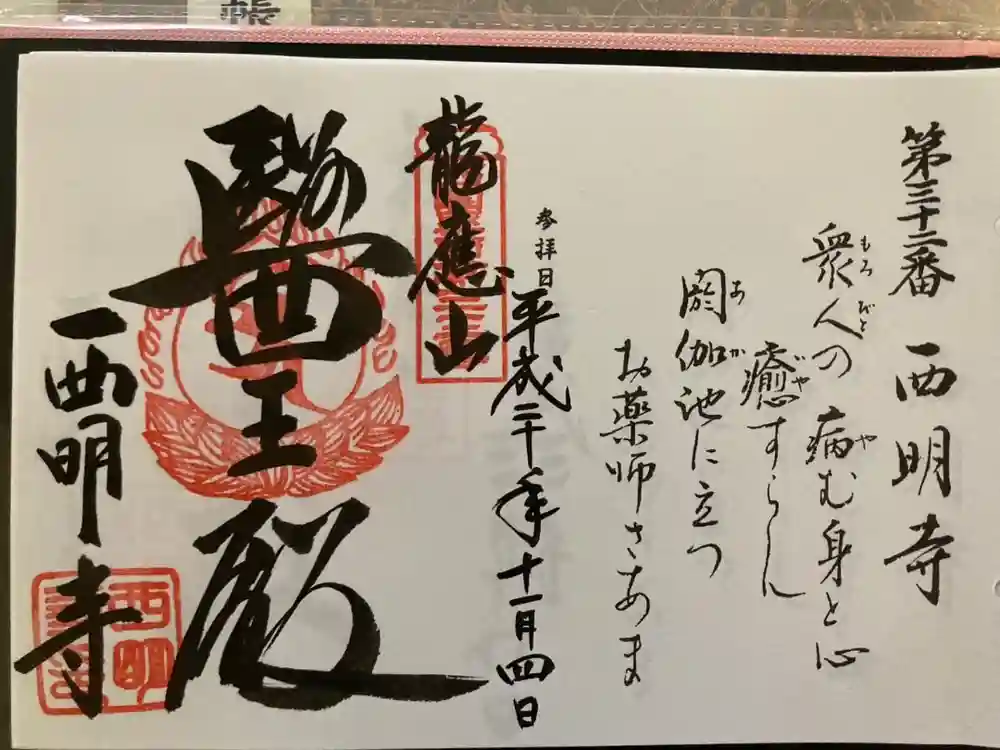 帳
第三十二番 西明寺
もろびと や
衆人の 病む身と心
癒すらん
あか
閼伽池に立つ
お薬師さあま
参拝日
平成二十年十一月四日
龍應山
醫王殿
西明寺
西明